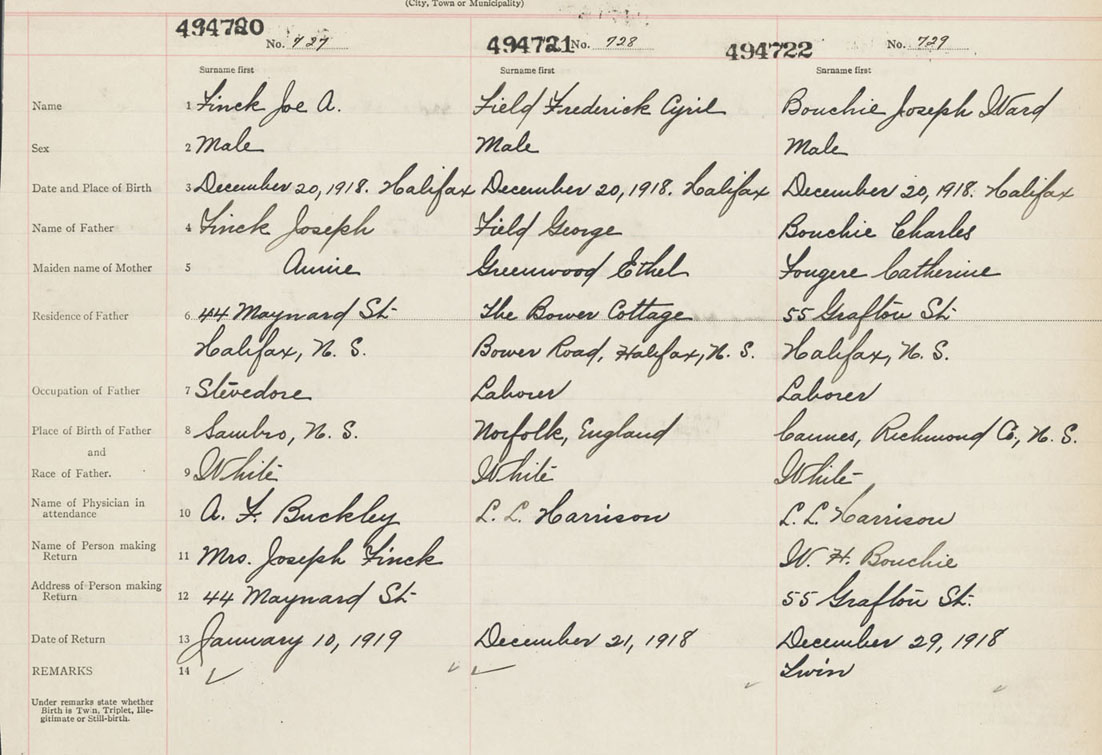 (City, Town or Municipality)
494720 No. 727 494721 No. 728 494722 No. 729
Surname first Surname first Surname first
Name 1 Finck Joe A. Field Frederick Cyril Bouchie Joseph Ward
Sex 2 Male Male Male
Date and Place of Birth 3 December 20, 1918. Halifax December 20, 1918. Halifax December 20, 1918. Halifax
Name of Father 4 Finck Joseph Field George Bouchie Charles
Maiden name of Mother 5 Annie Greenwood Ethel Fougere Catherine
Residence of Father 6 44 Maynard St. The Bower Cottage 55 Grafton St.
Halifax, N. S. Bower Road, Halifax, N. S. Halifax, N. S.
Occupation of Father 7 Stevedore Laborer Laborer
Place of Birth of Father 8 Sambro, N. S. Norfolk, England Cannes, Richmond Co., N. S.
and
Race of Father. 9 White White White
Name of Physician in
attendance 10 A. F. Buckley L. L. Harrison L. L. Harrison
Name of Person making
Return 11 Mrs. Joseph Finck W. H. Bouchie
Address of Person making
Return 12 44 Maynard St. 55 Grafton St.
Date of Return 13 January 10, 1919 December 21, 1918 December 29, 1918
REMARKS 14 Twin
Under remarks state whether
Birth is Twin, Triplet, Ille-
gitimate or Still-birth.